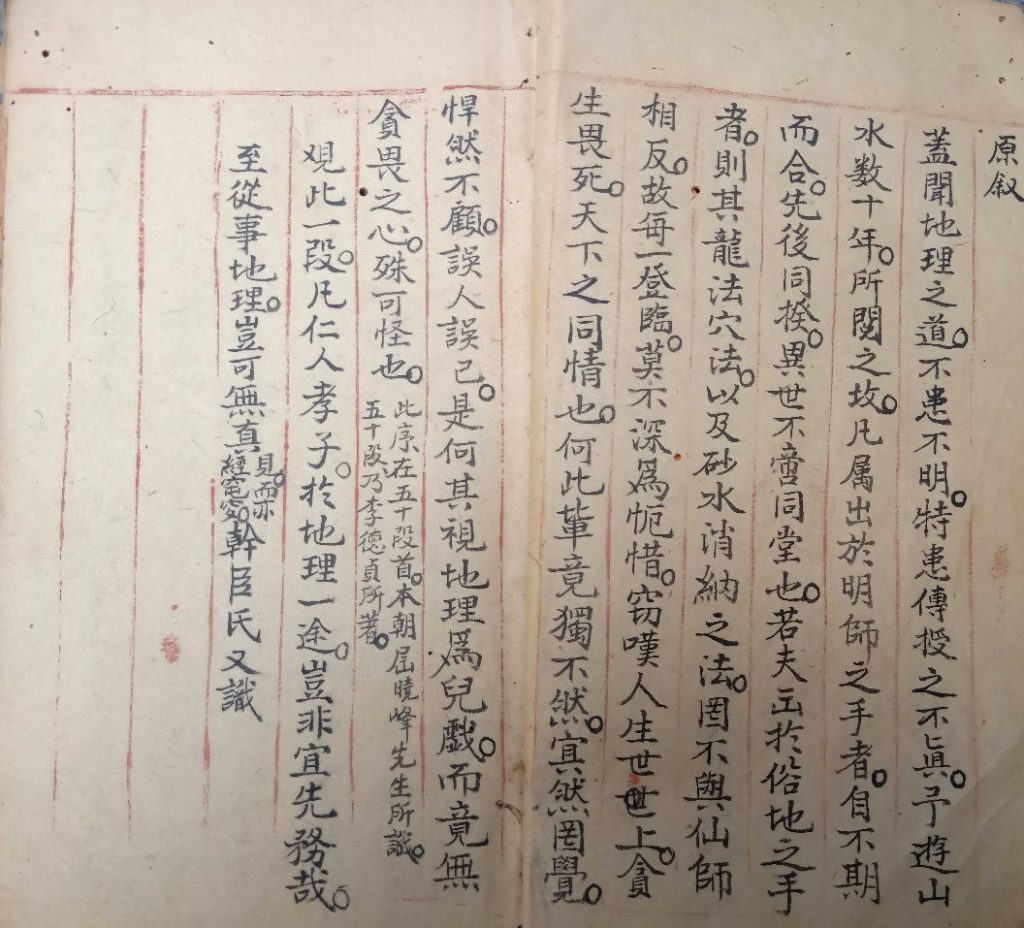 原叙
蓋聞地理之道。不患不明。特患傳授之不眞。予遊山
水数十年。所閱之坟。凡属出於明師之手者。自不期
而合。先後同揆。異世不啻同堂也。若夫出於俗地之手
者。則其龍法穴法。以及砂水消納之法。罔不與仙師
相反。故每一登臨。莫不深爲怩惜。窃嘆人生世世上。貪
生畏死。天下之同情也。何此輩竟獨不然。寘然罔覺。
悍然不顧。誤人誤己。是何其視地理爲兒戲。而竟無
貪畏之心。殊可怪也。
此序在五十段首。本朝屈曉峰先生所識。
五十段乃李德貞所著。
观此一段。凡仁人孝子。於地理一途。豈非宜先務哉。
至從事地理。豈可無真
見。而亦
幹臣氏又識